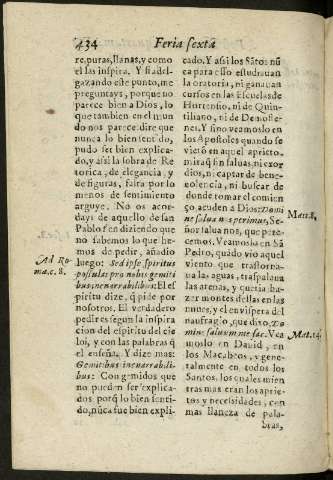 434 Feria sexta
re, puras, llanas, y como
el las inspira. Y si adel-
gazando este punto, me
preguntays, porque no
parece bien a Dios, lo
que tambien en el mun
do nos parece: dire que
nunca lo bien sentido,
pudo ser bien explica-
do, y assi la sobra de Re
torica, de elegancia, y
de figuras, faita por lo
menos de sentimiento
arguye. No os acor-
days de aquello de san
Pablo q̃ en diziendo que
no sabemos lo que he-
mos de pedir, añadio
luego: Sed ipse spiritus
postulat pro nobis gemiti
bus inenarrabilibus: El es
piritu dize, q̃ pide por
nosotros. El verdadero
pedir es segun la inspira
cion del espiritu del cie
lo, y con las palabras q̃
el enseña. Y dize mas:
Gemitibus inenarrabili-
bus: Con gemidos que
no pueden ser explica-
dos porq̃ lo bien senti-
do, nũca fue bien expli-
Ad Ro
ma. c. 8.
cado. Y assi los Sãtos nũ
ca para esso estudiauan
la oratoria, ni ganauan
cursos en las Escuelas de
Hortensio, ni de Quin-
tiliano, ni de Demoste-
nes. Y sino veamoslo en
los Apostoles quando se
vierõ en aquel aprieto.
miraq̃ sin salaas, ni exor
dios, ni captar de bene-
uolencia, ni buscar de
donde tomar el comien
ço, acuden a Dios: Domi
ne salua nos perimus, Se-
ñor salua nos, que pare-
cemos. Veamoslo en Sã
Pedro, quãdo vio aquel
viento que trastorna-
ua las aguas, traspalaua
las arenas, y queria ha-
zer montes dellas en las
nuues, y el en vispera del
naufragio, que dixo, Do
mine saluum me fac. Vea
moslo en Dauid, en
los Macabeos, y gene-
ralmente en todos los
Santos, los cuales mien
tras mas eran los aprie-
tos y necesidades, con
mas llaneza de pala-
bras,
Matt. 8.
Mat. 14.